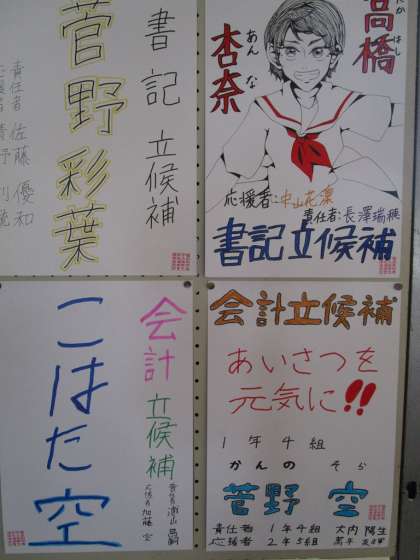 書記立候補
菅野彩葉
責任者 佐藤優和
高橋
たか はし
杏奈
あんな
応援者:中山花凜
責任者:長澤瑞穂
書記立候補
会計
立候補
こはた空
会計立候補
あいさつを
元気に!!
1年4組
かんの そら
菅野 空
責任者 1年4組 大内 陽生
応援者 2年3組